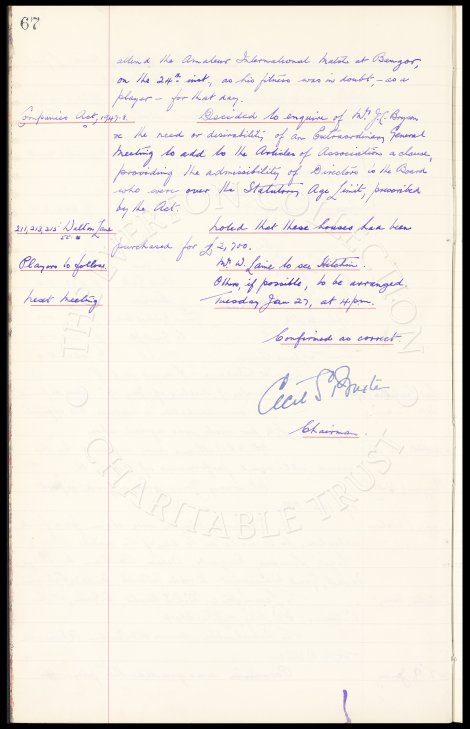 67
attend the Amateur International Match at Bangor,
on the 24th inst., as his fitness was in doubt, - as a
player - for that day.
Companies Act, 1947-8. Decided to enquire of Mr. J.C. Bryson
re the need or desirability of an Extraordinary General
Meeting to add to the Articles of Association a clause,
providing the admissibility of Directors to the Board
who were over the Statutory Age Limit, prescribed
by the Act.
211, 213, 215 Walton Lane noted that these houses had been
purchased for £2,700.
Players to follow. Mr. W. Laine to see Hitchin.
Others, if possible, to be arranged.
next Meeting Tuesday, Jan 27, at 4 pm.
Confirmed as correct
Cecil S. Baxter
Chairman.
THE EVERTON COLLECTION
CHARITABLE TRUST